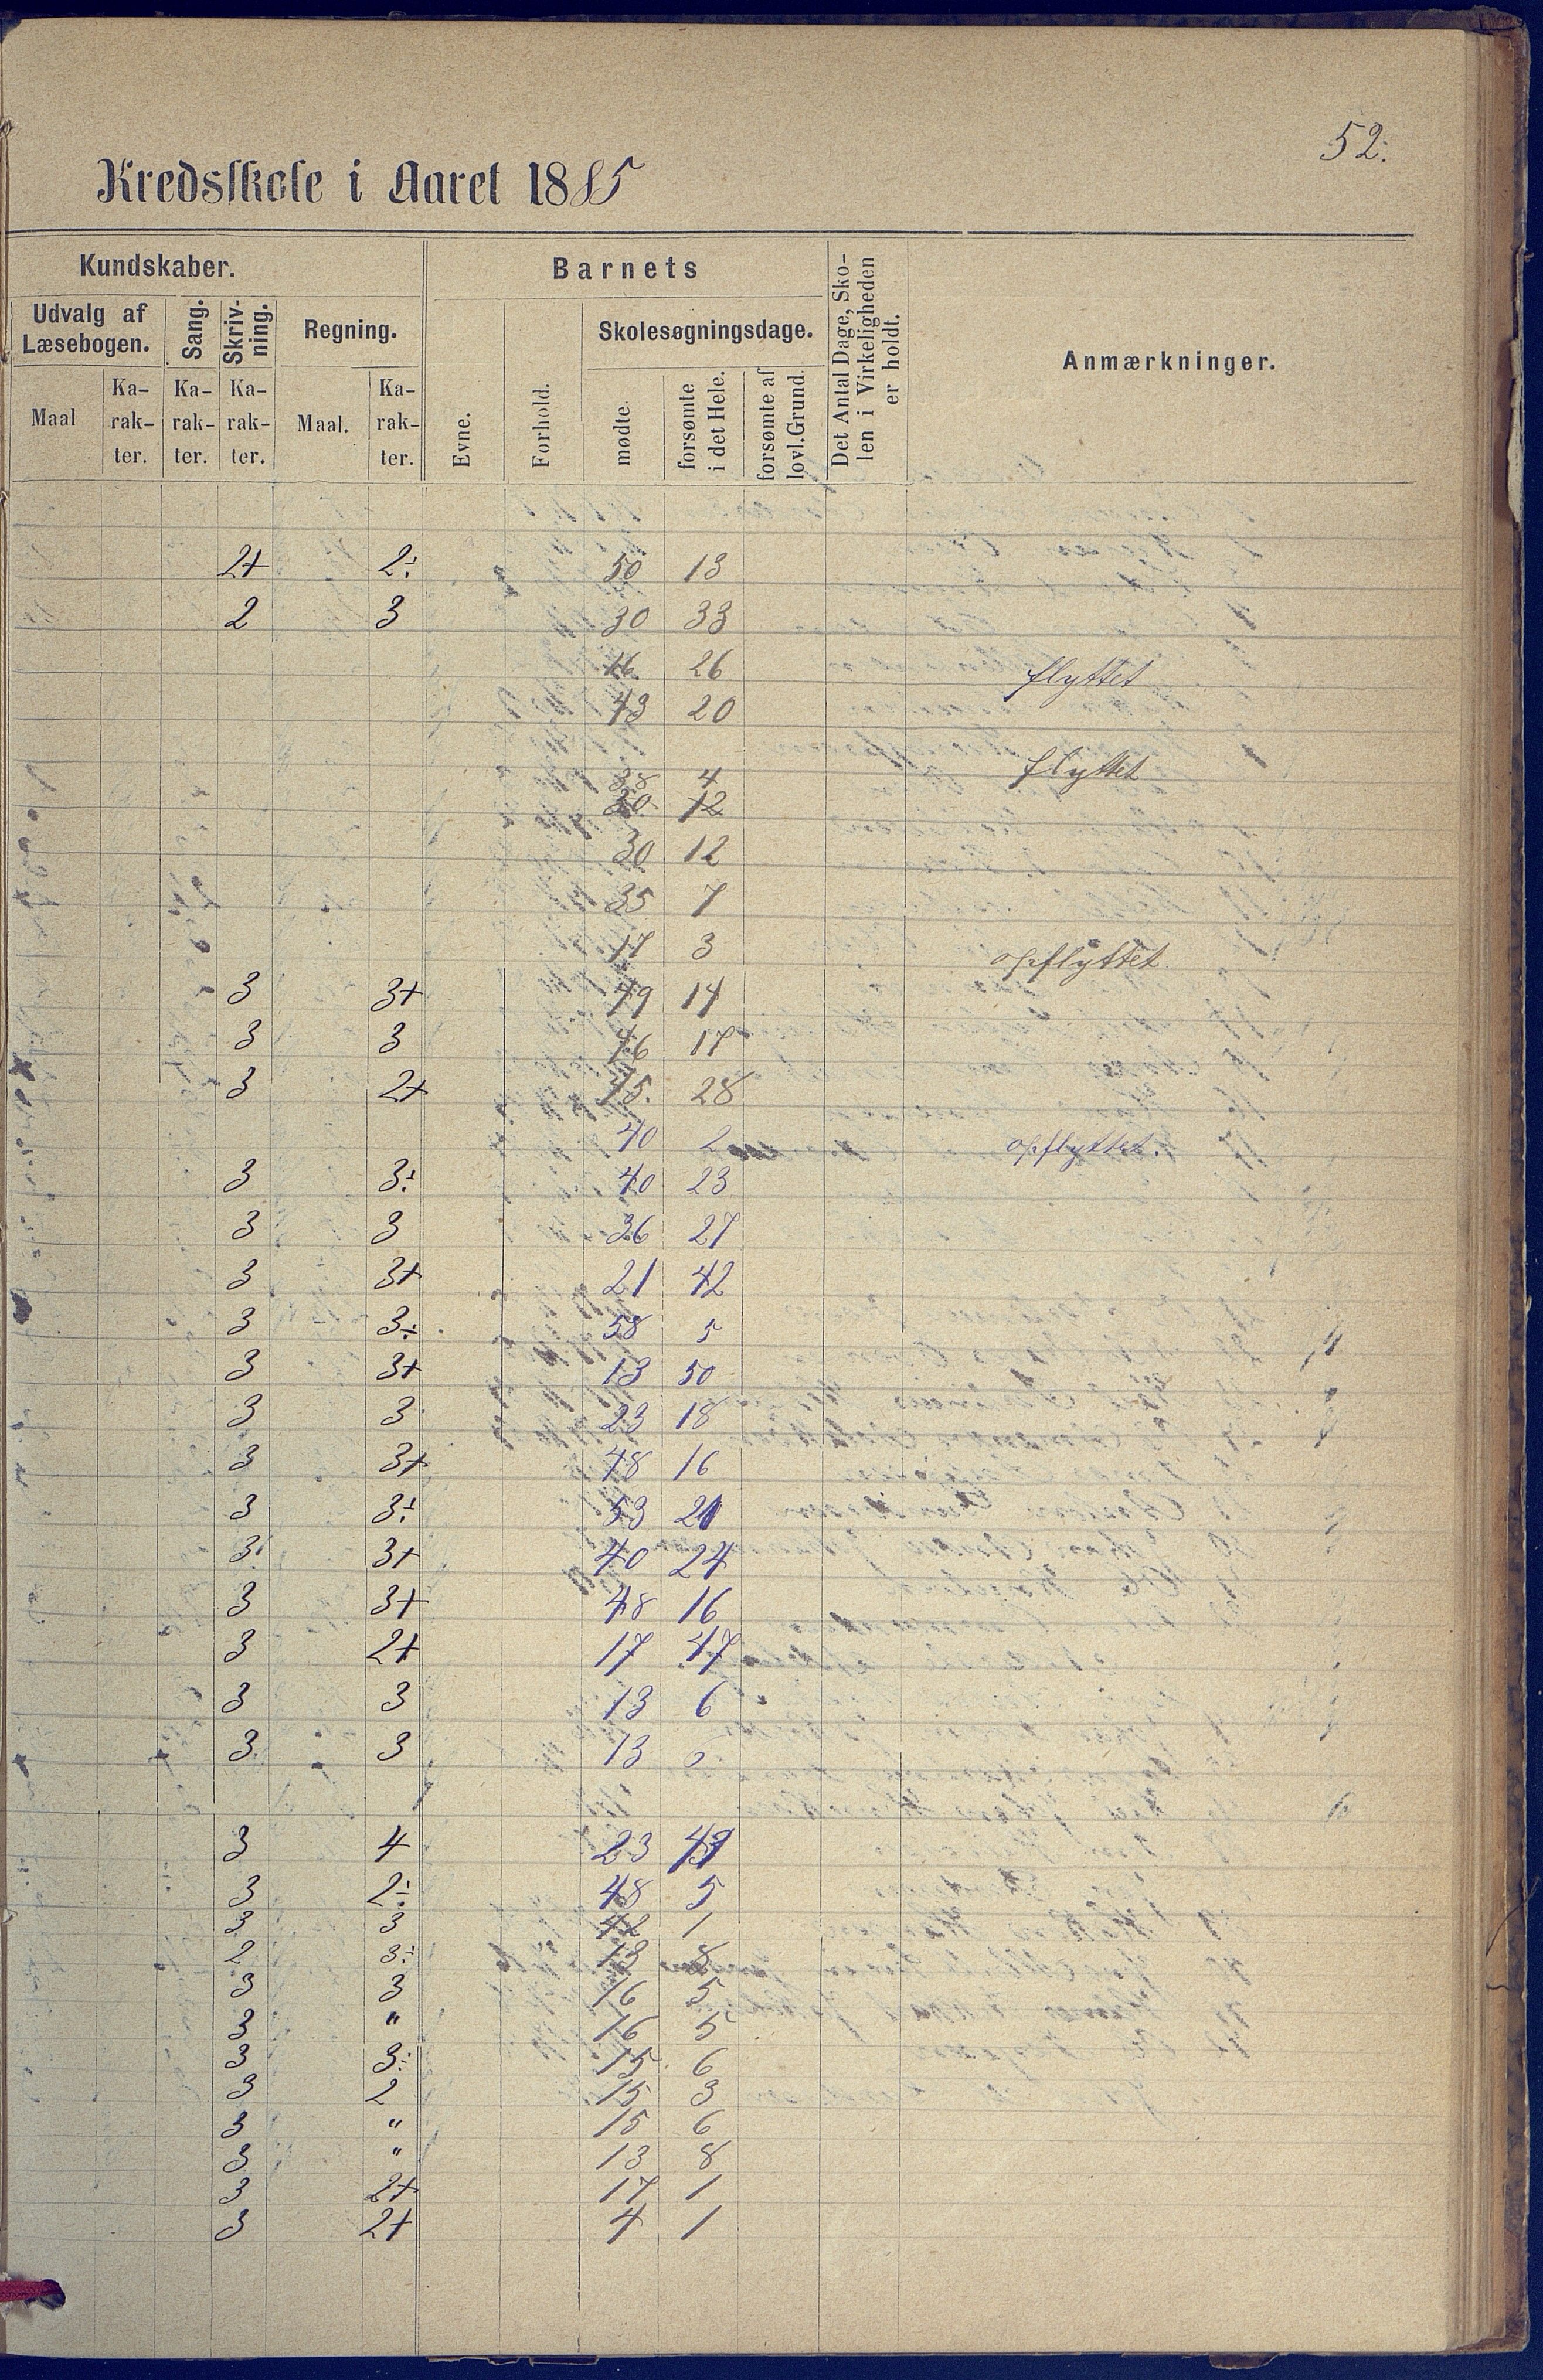 52.
Kredsskole i Aaret 1885
Kundskaber. Barnets Det Antal Dage, Skolen i Virkeligheden er holdt. Anmærkninger.
Udvalg af Læsebogen. Sang. Skrivning. Regning. Evne. Forhold. Skolesøgningsdage.
Maal Karakter. Karakter. Karakter. Maal. Karakter. mødte. forsømte i det Hele. forsømte af lovl. Grund.
2+ 2÷ 50 13
2 3 30 33
16 26 flyttet
43 20
38 4 flyttet
30 12
30 12
35 7
17 3 opflyttet
3 3+ 49 14
3 3 46 17
3 2+ 45. 28
40 2 opflyttet.
3 3÷ 40 23
3 3 36 27
3 3+ 21 42
3 3÷ 58 5
3 3+ 13 50
3 3 23 18
3 3+ 48 16
3 3÷ 53 21
3 3+ 40 24
3 3+ 48 16
3 2+ 17 47
3 3 13 6
3 3 13 6
3 4 23
3 2÷ 48 5
3 3 42 1
2 3÷ 13 8
3 3 16 5
3 " 16 5
3 3÷ 15 6
3 2 15 3
3 " 15 6
3 " 13 8
3 2+ 17 1
3 2+ 4 1